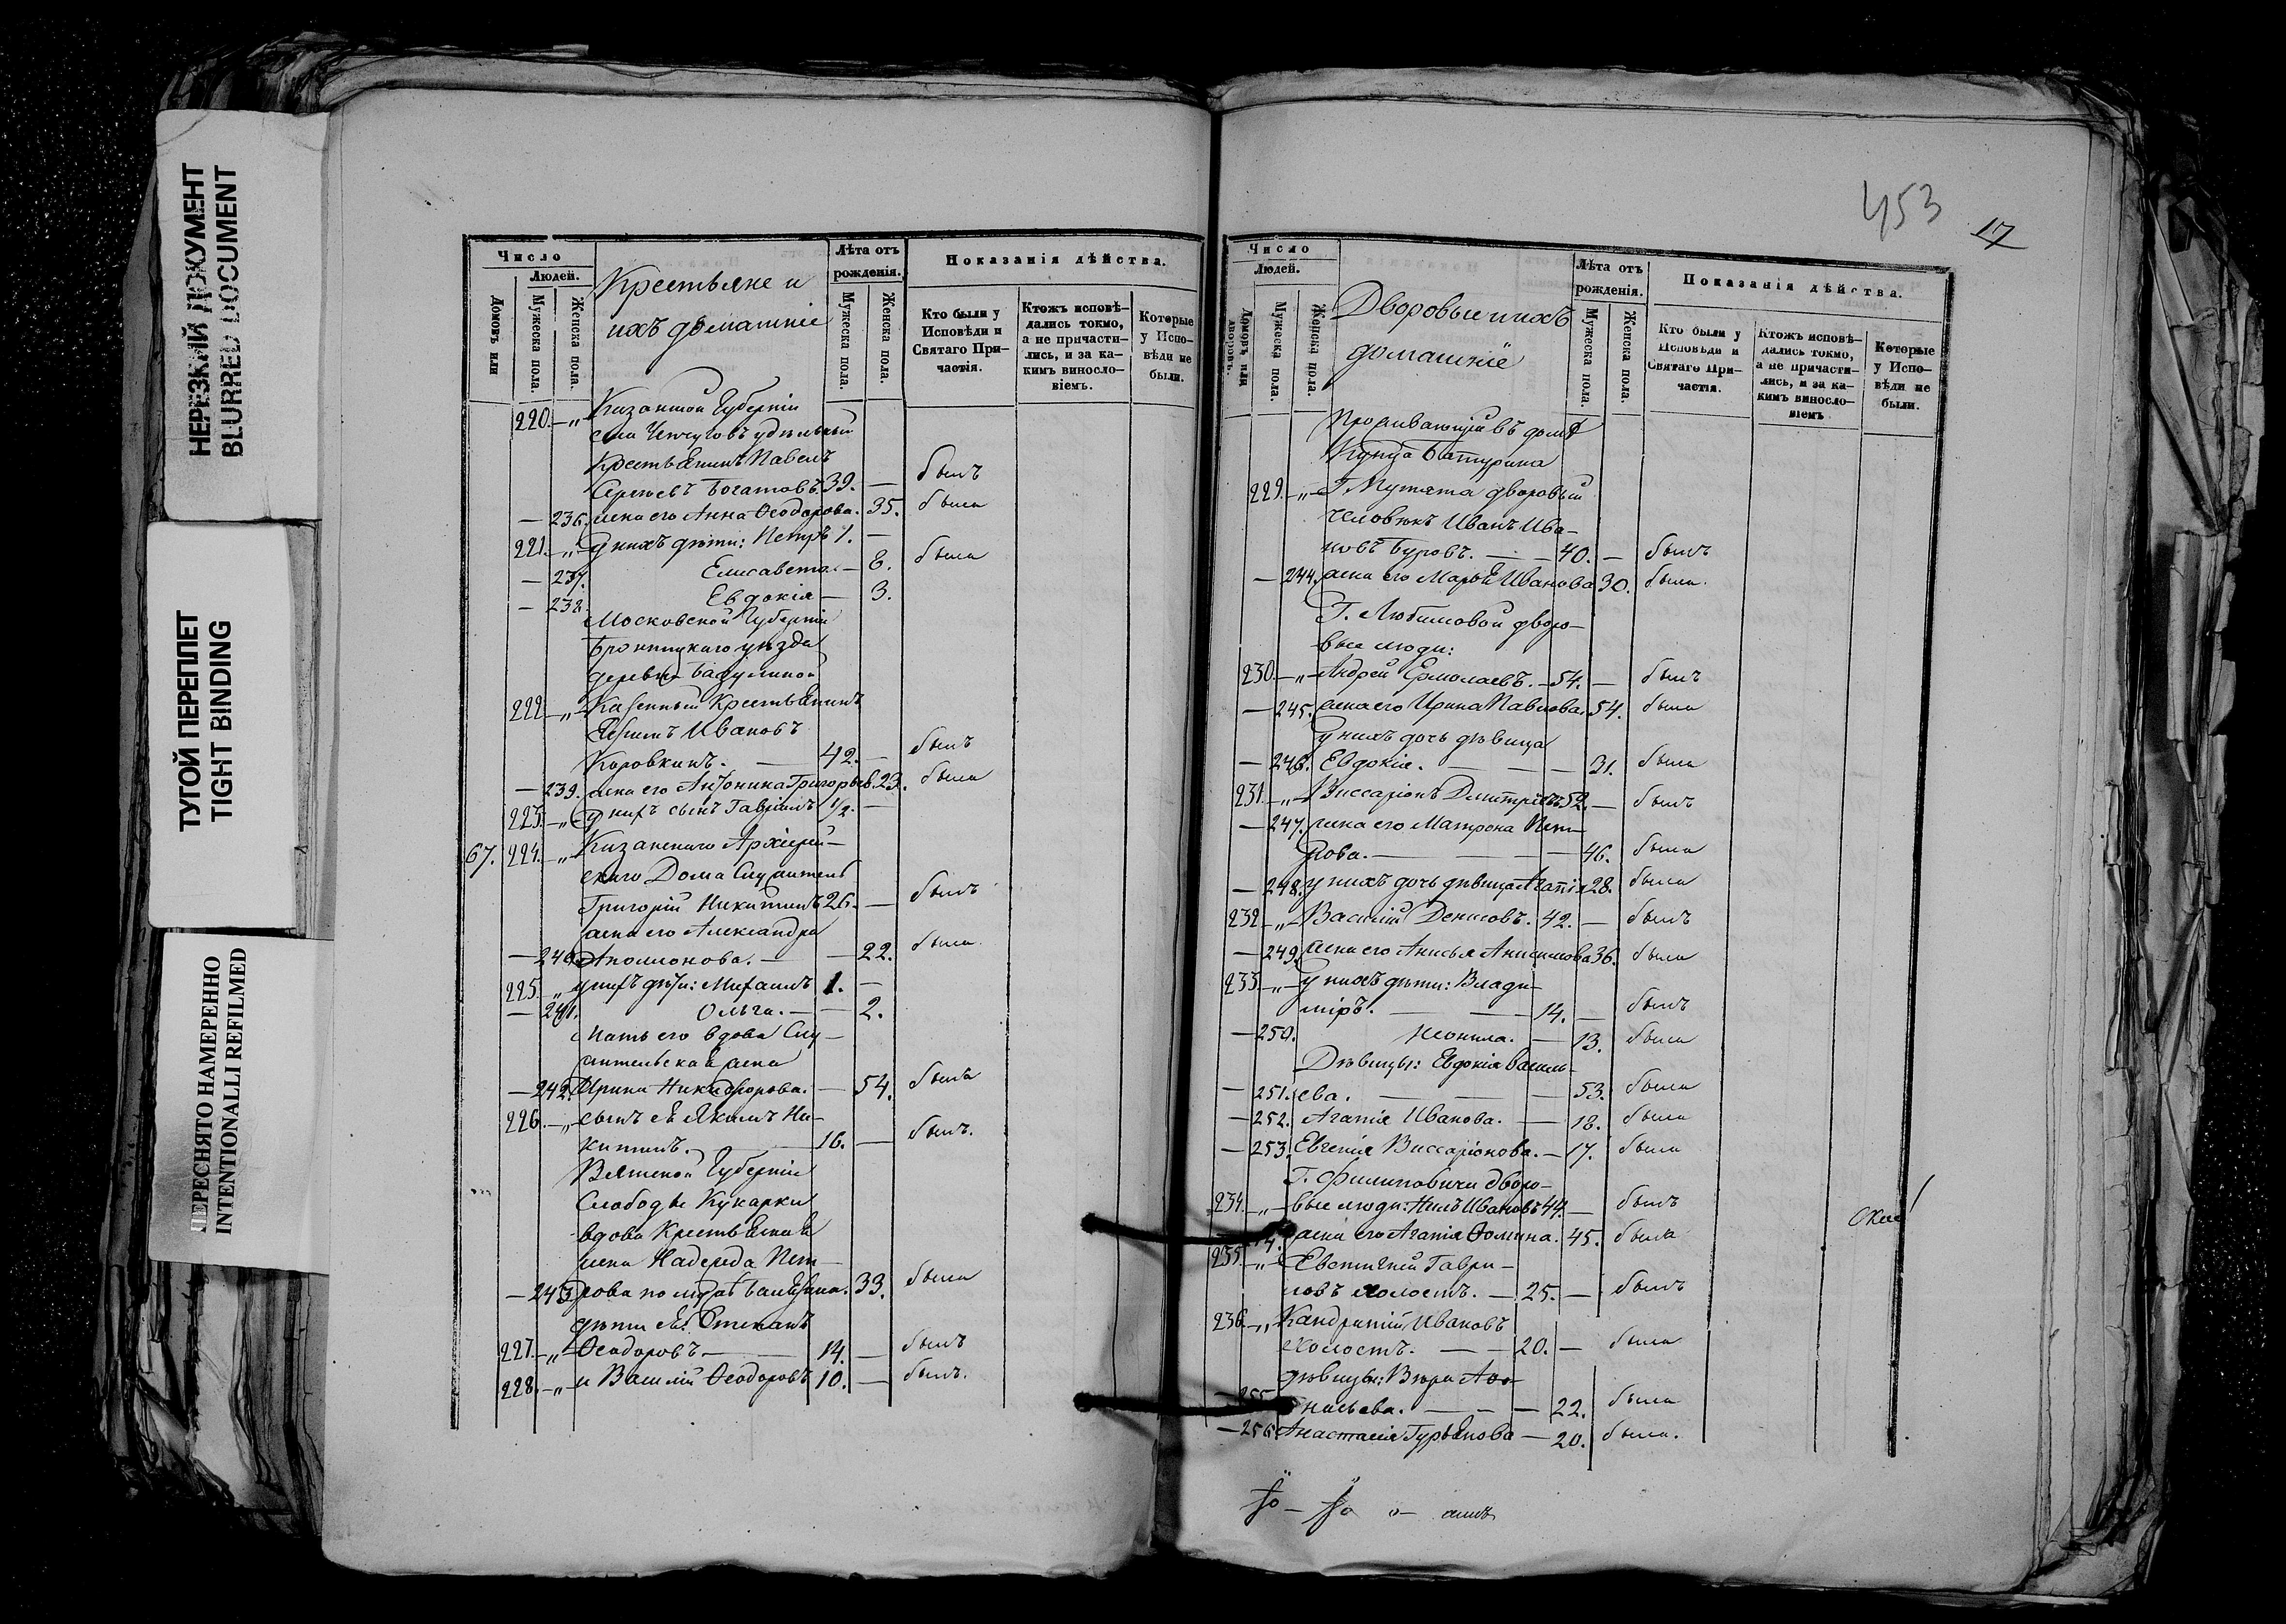 НЕРЕЗКИЙ ДОКУМЕНТ
BLURRED DOCUMENT
ТУГОЙ ПЕРЕПЛЕТ
TIGHT BINDING
ПЕРЕСНЯТО НАМЕРЕННО
INTENTIONALLI REFILMED
Число
Людей.
Домовъ или
Мужеска пола.
Женска пола.
Крестьяне и
ихъ домашніе
Лѣта отъ
рожденія.
Мужеска пола.
Женска пола.
Показанія дѣйства.
Кто были у
Исповѣди и
Святаго При-
частія.
Ктожъ исповѣ-
дались токмо,
а не причасти-
лись, и за ка-
кимъ винословіемъ.
Которые
у Испо-
вѣди не
были.
220. — „ Казанской Губерніи
села удѣльный
Крестьянинъ Павелъ
Сергѣевъ Богатовъ. 39. — былъ
— 236. жена его Анна Ѳеодорова. 35. была
221. — „ У нихъ дѣти: Петръ 1. —
— 237. Елисавета. — 8. была
— 238. Евдокія — 3.
Московской Губерніи
Бронницкаго уѣзда
деревни
222. — „ Казенный Крестьянинъ
Ивановъ
Коровкинъ. — 42. — былъ
— 239. жена его Антонина Григорьев. 23. была
223. — „ У нихъ сынъ Гавріилъ 1/2. —
67. 224. — „ Казанскаго Архіерей-
скаго Дома Служитель
Григорій Никитинъ 26. — былъ
жена его Александра
— 240. Аполлонова. — — 22. была.
225. „ у нихъ дѣти: Михаилъ 1. —
— 241. Ольга. — — 2.
Мать его вдова Слу-
жительская жена
— 242. Ирина Никифорова. — 54. была
226. — „ сынъ ея Якимъ Ни-
китинъ. — 16. — былъ.
Вятской Губерніи
Слободы Кукарки
вдова Крестьянская
жена Надежда Пет-
— 243. рова по мужѣ 33. была
дѣти ея: Степанъ
227. — „ Ѳеодоровъ — — 14. — былъ
228. — „ и Василій Ѳеодоровъ 10. — былъ.
453
17
Число
Людей.
Домовъ или
дворовъ.
Мужеска пола.
Женска пола.
Дворовые и ихъ
домашніе
Лѣта отъ
рожденія.
Мужеска пола.
Женска пола.
Показанія дѣйства.
Кто были у
Исповѣди и
Святаго При-
частія.
Ктожъ исповѣ-
дались токмо,
а не причасти-
лись, и за ка-
кимъ винословіемъ
Которые
у Испо-
вѣди не
были.
Проживающіе въ домѣ
Купца Батурина
229. — „ Г. дворовый
человѣкъ Иванъ Ива-
новъ Буровъ. — — 40. — былъ
— 244. жена его Марья Иванова 30. была.
Г. Любимовой дворо-
вые люди:
230. — „ Андрей Ермолаевъ. — 54. — былъ
— 245. жена его Ирина Павлова. 54. была
У нихъ дочь дѣвица
— 246. Евдокія. — — — 31. была
231. — „ Виссаріонъ Дмитріевъ 52. — былъ
— 247. жена его Матрона Пет-
рова. — — — 46. была
— 248. у нихъ дочь дѣвица Агапія 28. была
232. — „ Василій Денисовъ. 42. — былъ
— 249. жена его Анисья Анисимова 36. была
233. — „ У нихъ дѣти: Влади-
міръ. — — 14. — былъ
— 250. Неонила. — 13. была
Дѣвицы: Евдокія Василь-
— 251. ева. — — — 53. была
— 252. Агапія Иванова. — 18. была
— 253. Евгенія Виссаріонова. — 17. была
Г. Филиповичи дворо-
234. — „ вые люди: Нилъ Ивановъ 44. — былъ
4. жена его Агапія Ѳомина. 45. была
235. — „ Евстигней Гаври-
ловъ холостъ. — 25. — былъ
236. — „ Кандратій Ивановъ
холостъ. — — 20. — была
дѣвицы: Вѣра Аѳа-
— 255. насьева. — — — 22. была
— 256. Анастасія Гурьянова — 20. была.